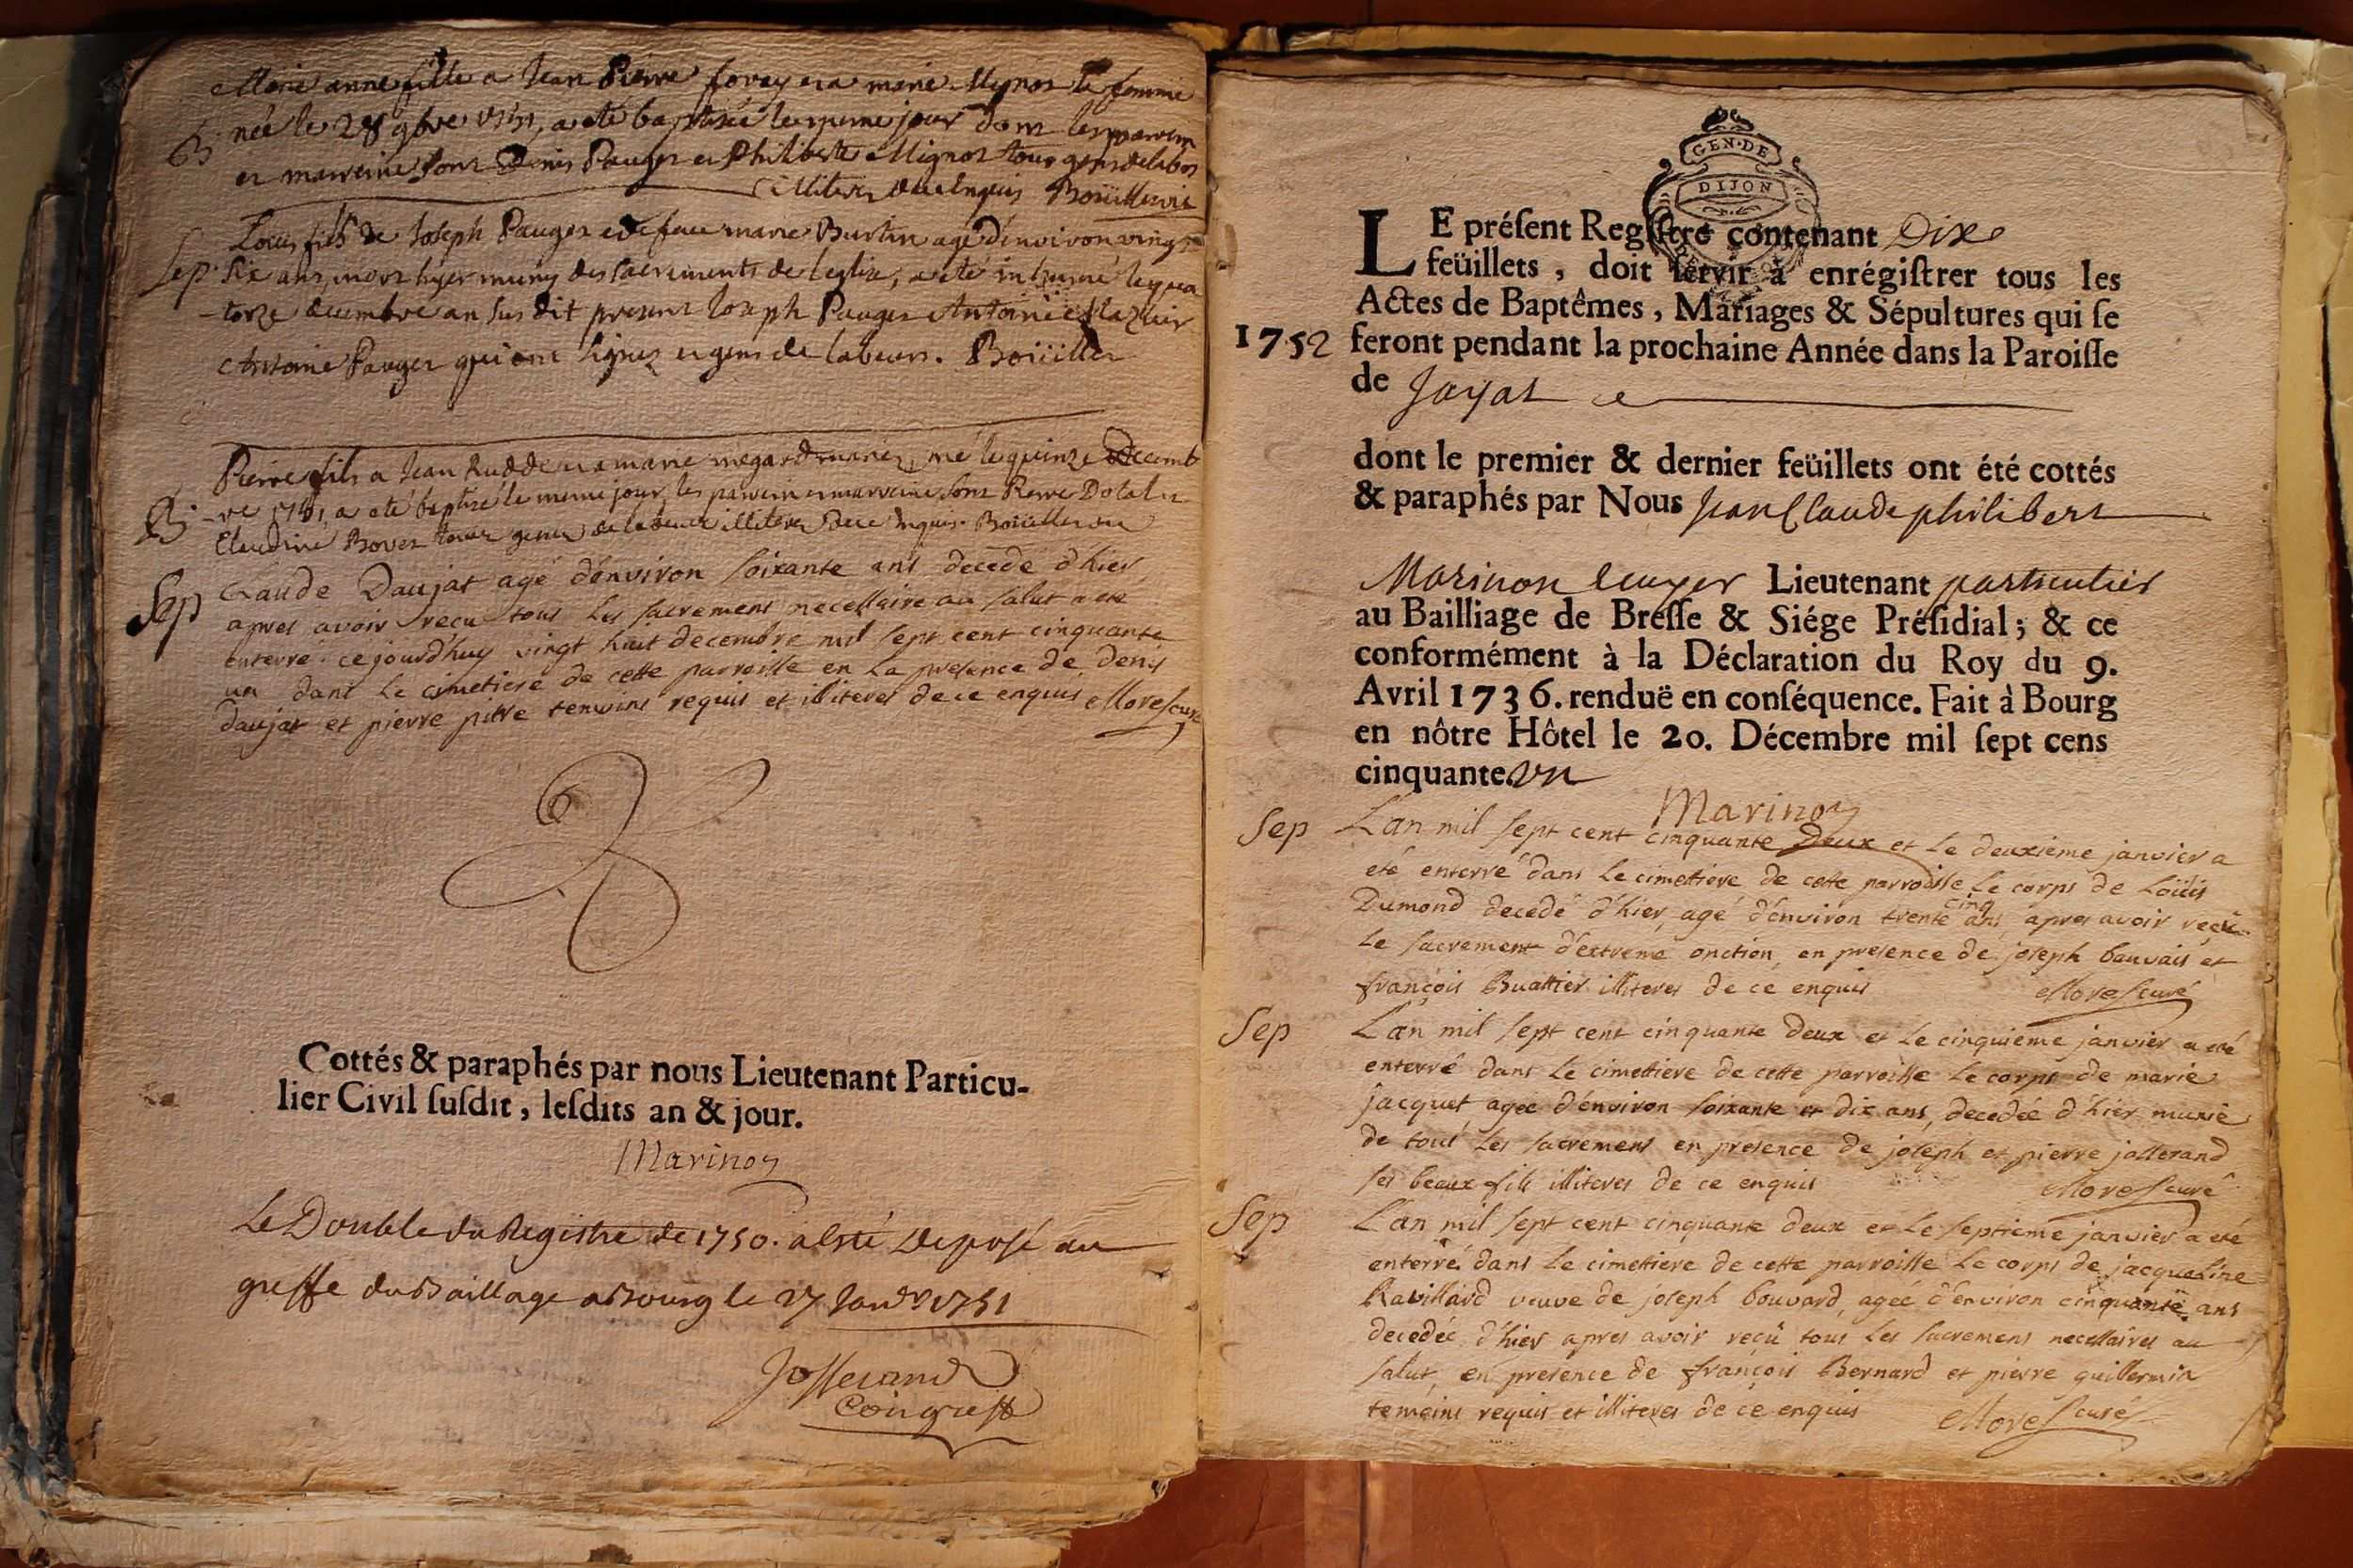 Marie anne fille a Jean Pierre forey et a marie Mignot sa femme
B. née le 28 9bre 1751, a eté baptisée le meme jour dont les parrein
et marreine sont Denis Pauget et Philiberte Mignot tous gens de labor
illiteres de ce enquis Boüillet
Loüis fils de Joseph Pauget et de feue marie Burtin agé d'environ vingt
Sep. six ans, mort hyer muny des sacrements de l'eglise, a eté inhumé le qua
-torze decembre an susdit present Joseph Pauget Antoine
Antoine Pauget qui ont signez et gens de labeurs. Boüillet
Pierre fils a Jean Rudde et a marie megard mariez, né le quinze Decemb
B. -re 1751, a eté baptisé le meme jour, les parrein et marreine sont Pierre Dotal et
Claudine Bovet tous gens de labeur illiteres de ce enquis. Boüillet
Sep Claude Daujat agé d'environ soixante ans decedé d'hier
apres avoir recu tous les sacremens necessaire au salut a eté
enterré. ce jourd'huy vingt huit decembre mil sept cent cinquante
un dans le cimetiere de cette parroisse en la presence de denis
daujat et pierre pitre temoins requis et illiteres de ce enquis Morel curé
Cottés & paraphés par nous Lieutenant Particu-
lier Civil susdit, lesdits an & jour.
Marinon
Le Double du Registre de 1750. a esté Deposé au
greffe du Baillage a Bourg le 27 Janvr 1751
Josserand
GEN·DE
DIJON
LE présent Registre contenant Dix
feüillets, doit servir à enrégistrer tous les
Actes de Baptêmes, Mariages & Sépultures qui se
1752 feront pendant la prochaine Année dans la Paroisse
de Jayat
dont le premier & dernier feüillets ont été cottés
& paraphés par Nous Jean Claude philibert
Marinon ecuyer Lieutenant particulier
au Bailliage de Bresse & Siége Présidial; & ce
conformément à la Déclaration du Roy du 9.
Avril 1736. renduë en conséquence. Fait à Bourg
en nôtre Hôtel le 20. Décembre mil sept cens
cinquante un
Marinon
Sep L'an mil sept cent cinquante Deux et le deuxieme janvier a
eté enterré dans le cimettiere de cette parroisse le corps de Loüis
Dumond decedé d'hier, agé d'environ trente cinq ans, apres avoir reçu
le sacrement d'extreme onction, en presence de joseph bauvais et
françois Buattier illiteres de ce enquis Morel curé
Sep L'an mil sept cent cinquante deux et le cinquieme janvier a eté
enterré dans le cimettiere de cette parroisse le corps de marie
jacquet agee d'environ soixante et dix ans, decedée d'hier munie
de tous les sacremens en presence de joseph et pierre josserand
ses beaux fils illiteres de ce enquis Morel curé
Sep L'an mil sept cent cinquante deux et le septieme janvier a eté
enterré dans le cimettiere de cette parroisse le corps de jacqueline
Ravillard veuve de joseph bouvard, ageé d'environ cinquante ans
decedée d'hier apres avoir reçü tous les sacremens necessaires au
salut, en presence de françois Bernard et pierre guillermin
temoins requis et illiteres de ce enquis Morel curé